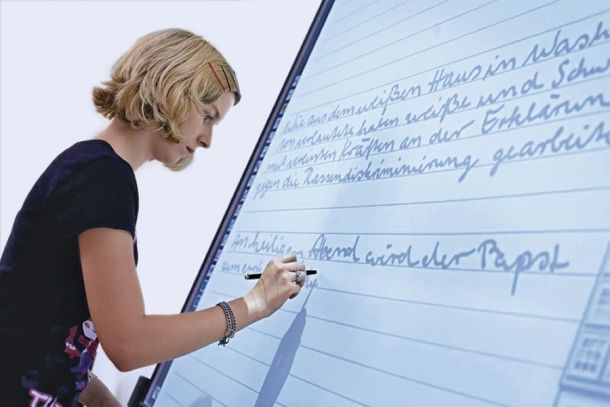 Wie aus dem weißen Haus in Wash
ton verlautete haben weiße und Schw
mit vereinten Kräften an der Erklärun
gegen die Rassendiskriminierung gearbeite
Am heiligen Abend wird der Papst
zum ersten